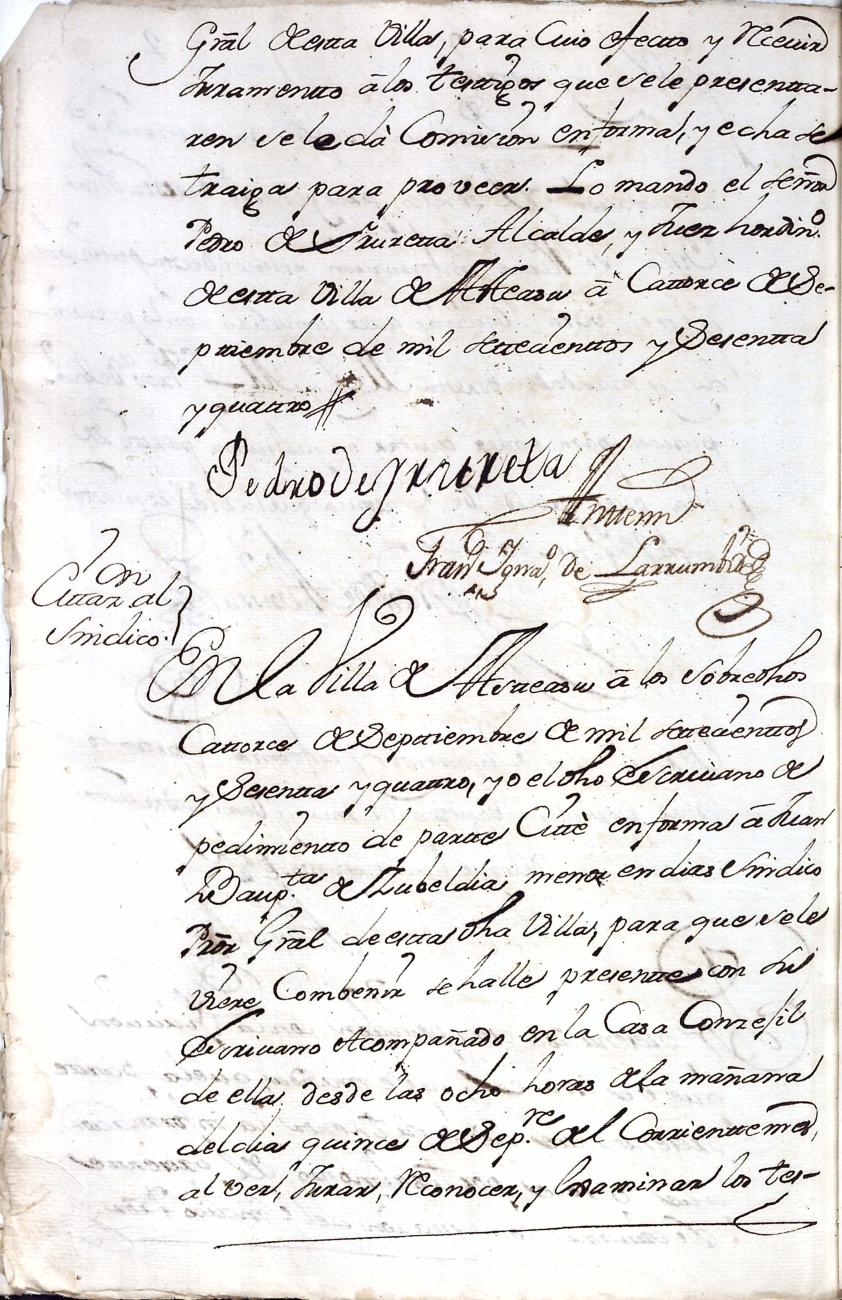 Gral de esta Villa, para Cuio efecto y Recevir
Juramentto â los testigos que se le presentta-
ren se le dà Comision en forma, y echa se
traiga para proveer. Lo mando el señor
Pedro de Yrureta Alcalde, y Juez hordin.º
de estta Villa de Atteasu â Cattorce de Se-
pttiembre de mil settecientos y Sesentta
y quattro
Pedro de Yrureta
Antte mi
Fran.co Ygna.º de Larrumbide
En la Villa de Asteasu â los sobredhos
Cattorce de Septtiembre de mil settecienttos
y Sesentta y quattro, yo el dho Escrivano de
pedimiento de partte Cittè en forma â Juan
Baup.ta de Zubeldia menor en dias Sindico
Pror Gral de estta dha Villa, para que si le
viere Combenir se halle presentte con su
Escrivano Acompañado en la Casa Conzejil
de ella desde las ocho horas de la mañana
del dia quince de Sep.re del Corriente mes,
al ver, Jurar, Reconocer, y Examinar los tes-
Cittaz.on al
Sindico.